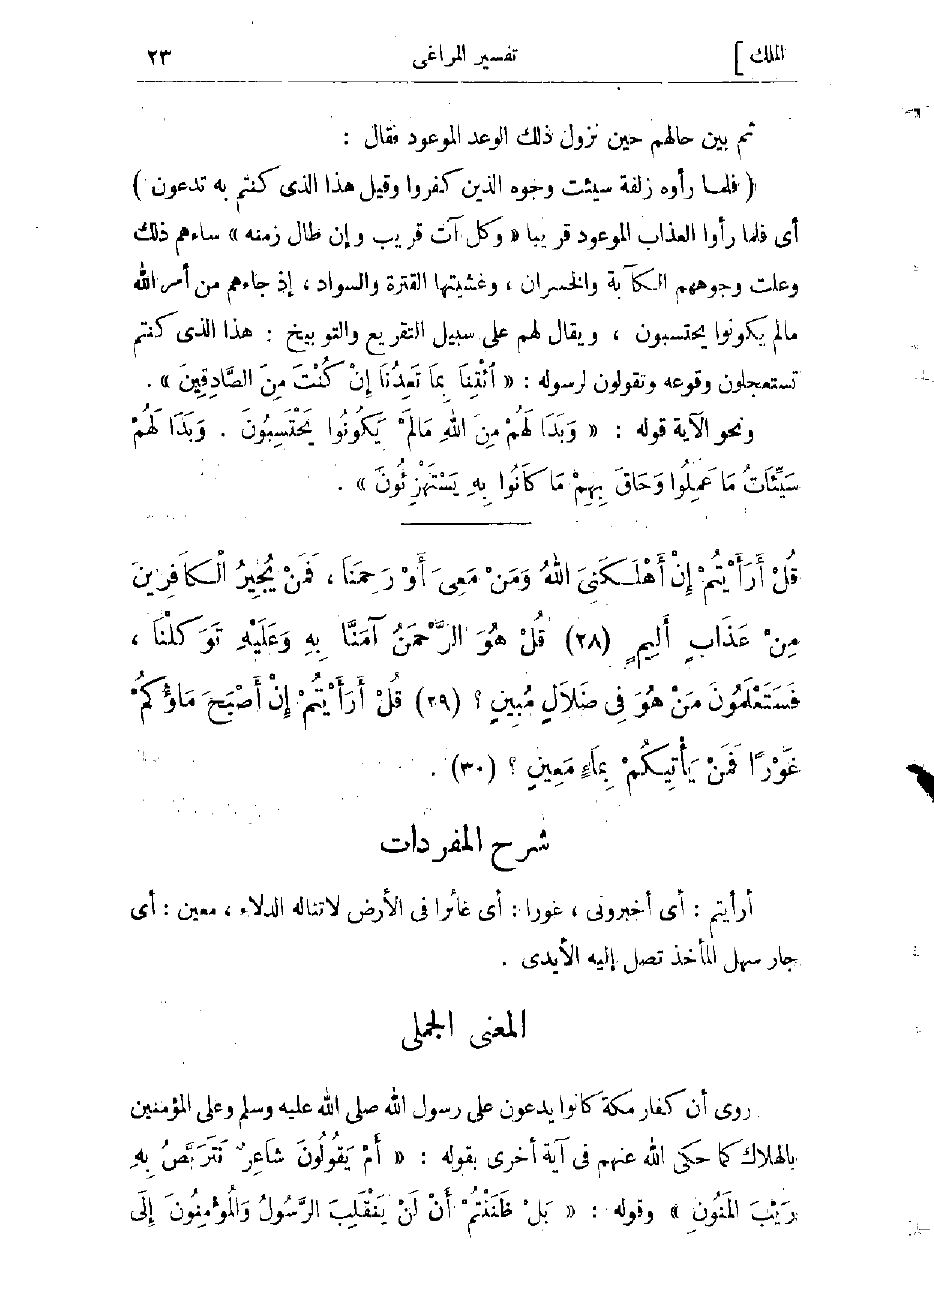 الملك ] تفسير المراغى ٢٣
ثم بين حالهم حين نزول ذلك الوعد الموعود فقال :
( فلما رأوه زلفة سيئت وجوه الذين كفروا وقيل هذا الذى كنتم به تدعون )
أى فلما رأوا العذاب الموعود قريبا « وكل آت قريب وإن طال زمنه » ساءهم ذلك
وعلت وجوههم الكآبة والخسران ، وغشيتها القترة والسواد ، إذ جاءهم من أمر الله
مالم يكونوا يحتسبون ، ويقال لهم على سبيل التقريع والتوبيخ : هذا الذى كنتم
تستعجلون وقوعه وتقولون لرسوله : « ائْتِنَا بِمَا تَعِدُنَا إِنْ كُنْتَ مِنَ الصَّادِقِينَ » .
ونحو الآية قوله : « وَبَدَا لَهُمْ مِنَ اللهِ مَالَمْ يَكُونُوا يَحْتَسِبُونَ . وَبَدَا لَهُمْ
سَيِّئَاتُ مَا عَمِلُوا وَحَاقَ بِهِمْ مَا كَانُوا بِهِ يَسْتَهْزِئُونَ » .
قُلْ أَرَأَيْتُمْ إِنْ أَهْلَكَنِىَ اللهُ وَمَنْ مَعِىَ أَوْ رَحِمَنَا ، فَمَنْ يُجِيرُ الْكَافِرِينَ
مِنْ عَذَابٍ أَلِيمٍ (٢٨) قُلْ هُوَ الرَّحْمَنُ آمَنَّا بِهِ وَعَلَيْهِ تَوَكَّلْنَا ،
فَسَتَعْلَمُونَ مَنْ هُوَ فِى ضَلاَلٍ مُبِينٍ ؟ (٢٩) قُلْ أَرَأَيْتُمْ إِنْ أَصْبَحَ مَاؤُكُمْ
غَوْرًا فَمَنْ يَأْتِيكُمْ بِمَاءٍ مَعِينٍ ؟ (٣٠) .
شرح المفردات
أرأيتم : أى أخبرونى ، غورا : أى غائرا فى الأرض لاتناله الدلاء ، معين : أى
جار سهل المأخذ تصل إليه الأيدى .
المعنى الجملى
روى أن كفار مكة كانوا يدعون على رسول الله صلى الله عليه وسلم وعلى المؤمنين
بالهلاك كما حكى الله عنهم فى آية أخرى بقوله : « أَمْ يَقُولُونَ شَاعِرٌ نَتَرَبَّصُ بِهِ
رَيْبَ الْمَنُونِ » وقوله : « بَلْ ظَنَنْتُمْ أَنْ لَنْ يَنْقَلِبَ الرَّسُولُ وَالْمُؤْمِنُونَ إِلَى